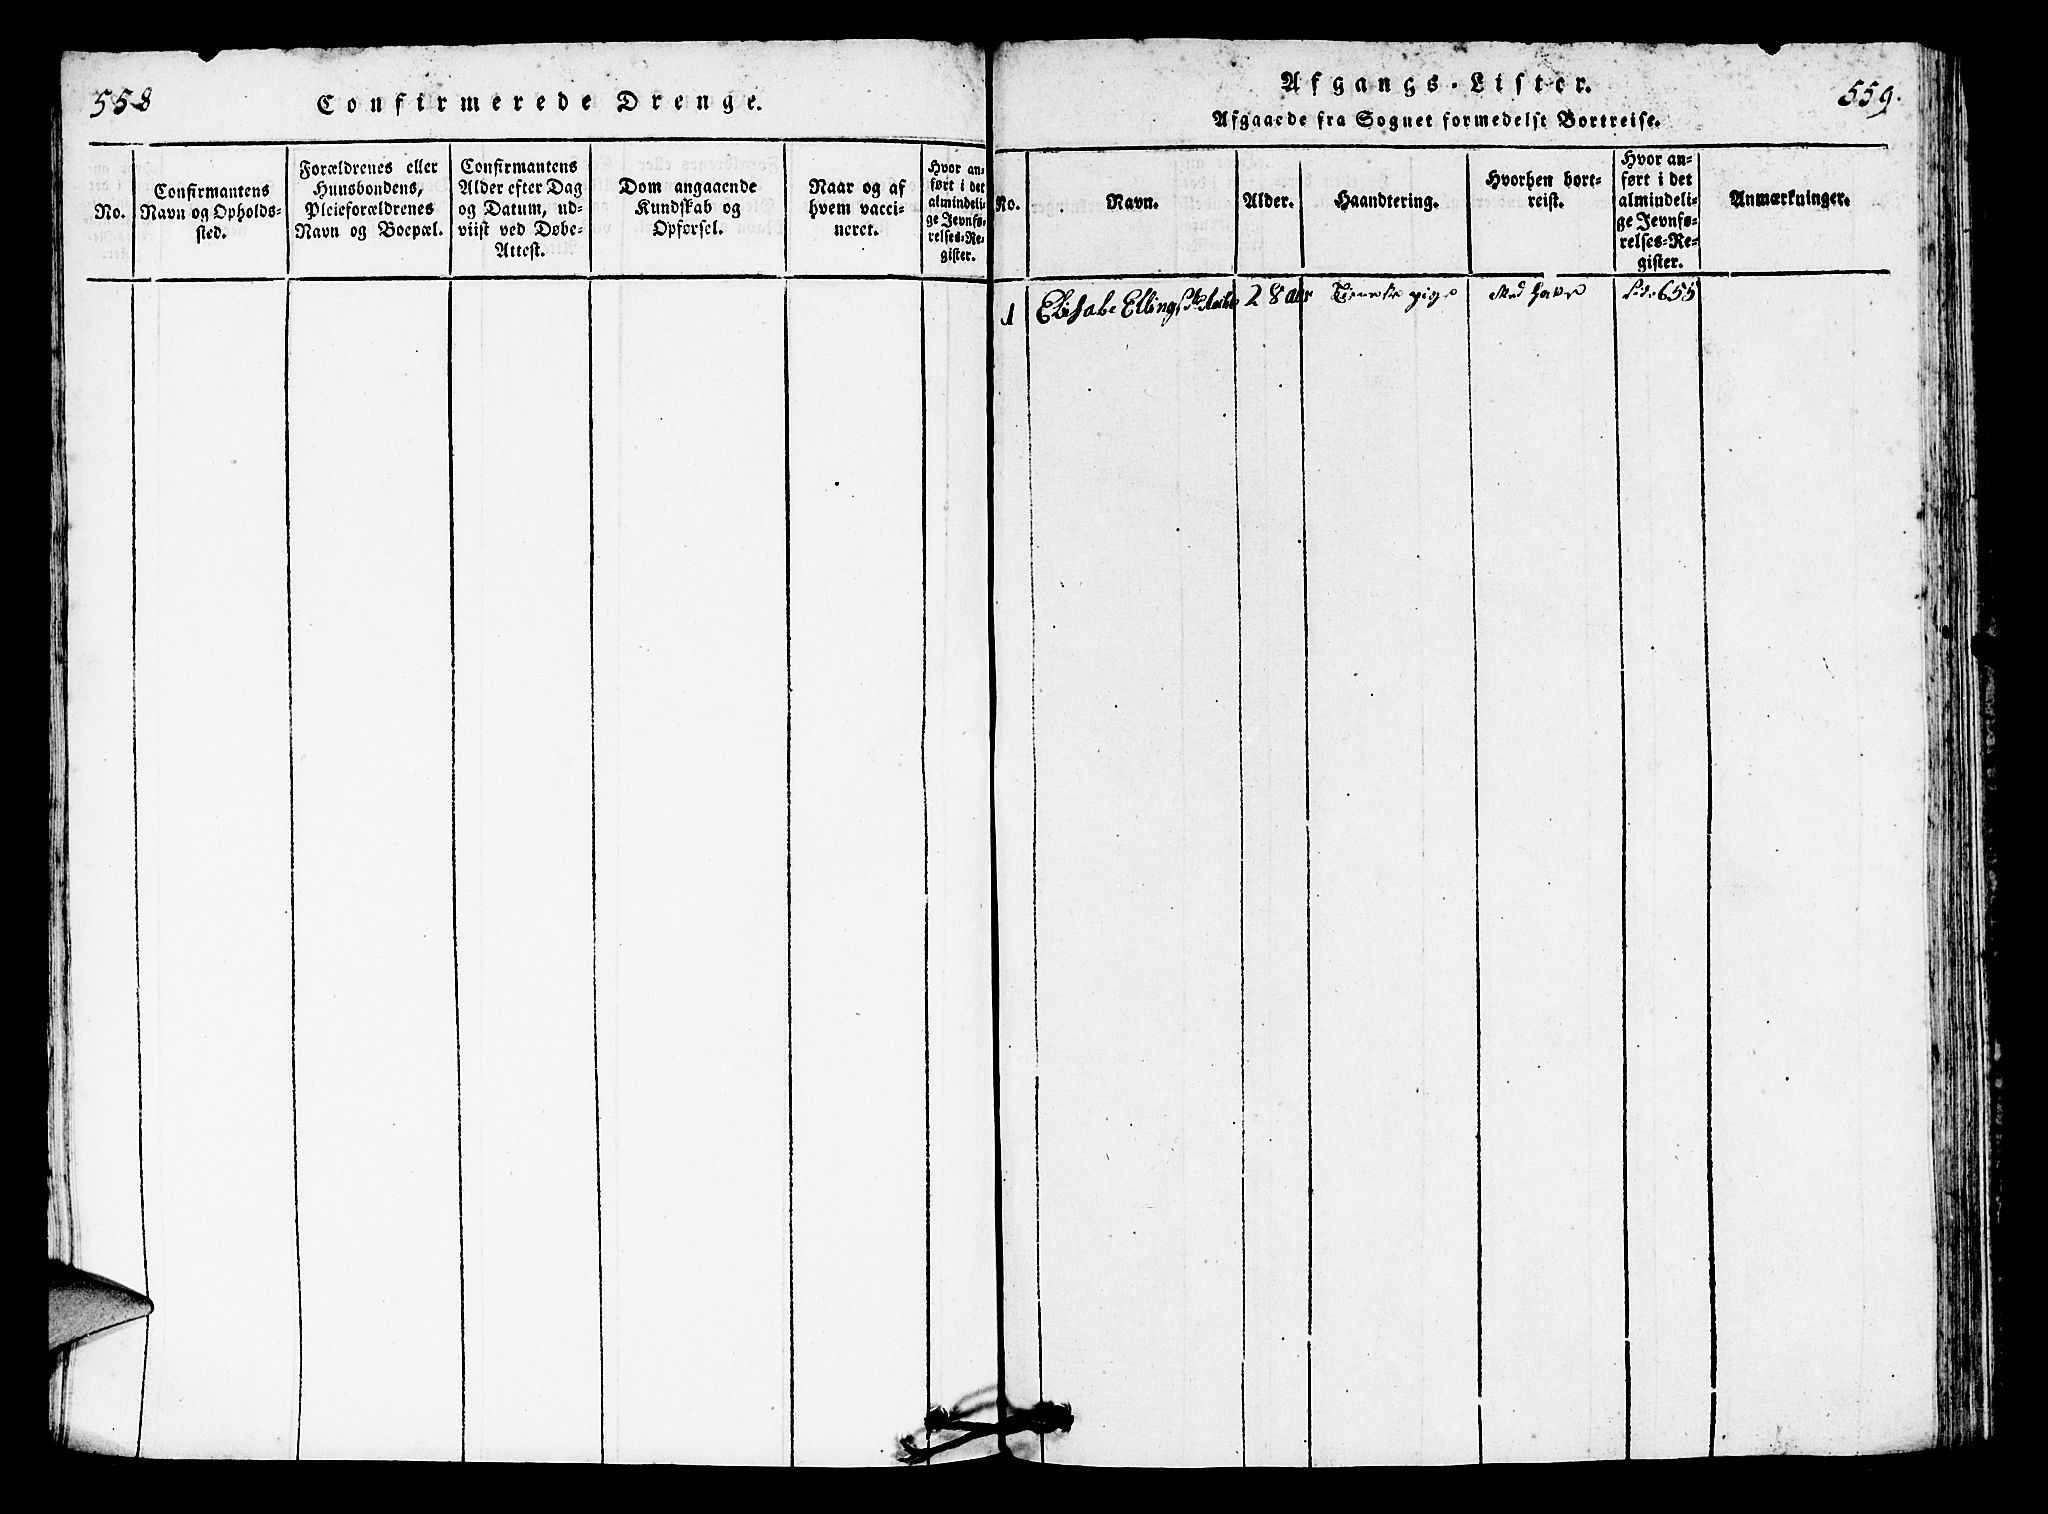 558
Confirmerede Drenge.
No.
Confirmantens
Navn og Opholds-
sted.
Forældrenes eller
Huusbondens,
Pleieforældrenes
Navn og Boepæl.
Confirmantens
Alder efter Dag
og Datum, ud-
viist ved Døbe-
Attest.
Dom angaaende
Kundskab og
Opførsel.
Naar og af
hvem vacci-
neret.
Hvor an-
ført i det
almindeli-
ge Jevnfø-
relses-Re-
gister.
Afgangs-Lister.
559.
Afgaaede fra Sognet formedelst Bortreise.
No.
Navn.
Alder.
Haandtering.
Hvorhen bort-
reist.
Hvor an-
ført i det
almindeli-
ge Jevnfø-
relses-Re-
gister.
Anmærkninger.
1 Elisabe Ellings 28 aar Tieneste pige Side 655